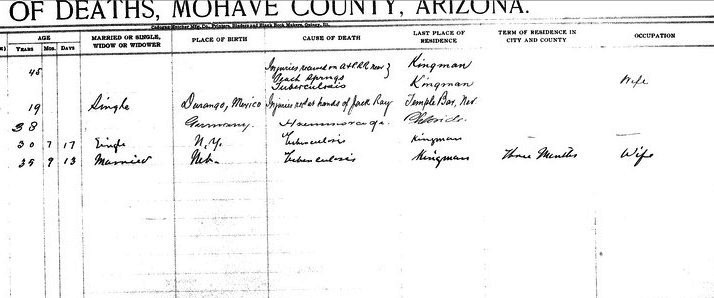 OF DEATHS, MOHAVE COUNTY, ARIZONA.
AGE
YEARS MOS. DAYS MARRIED OR SINGLE, WIDOW OR WIDOWER PLACE OF BIRTH CAUSE OF DEATH LAST PLACE OF RESIDENCE TERM OF RESIDENCE IN CITY AND COUNTY OCCUPATION
45 Injuries received on near Kingman
Peach Springs
Tuberculosis Kingman Wife
19 Single Durango, Mexico Injuries at hands of Jack Ray Temple Bar, Nev
38 Germany Chloride
30 7 17 Single N.Y. Tuberculosis Kingman — —
35 9 13 Married Neb. Tuberculosis Kingman Three Months Wife